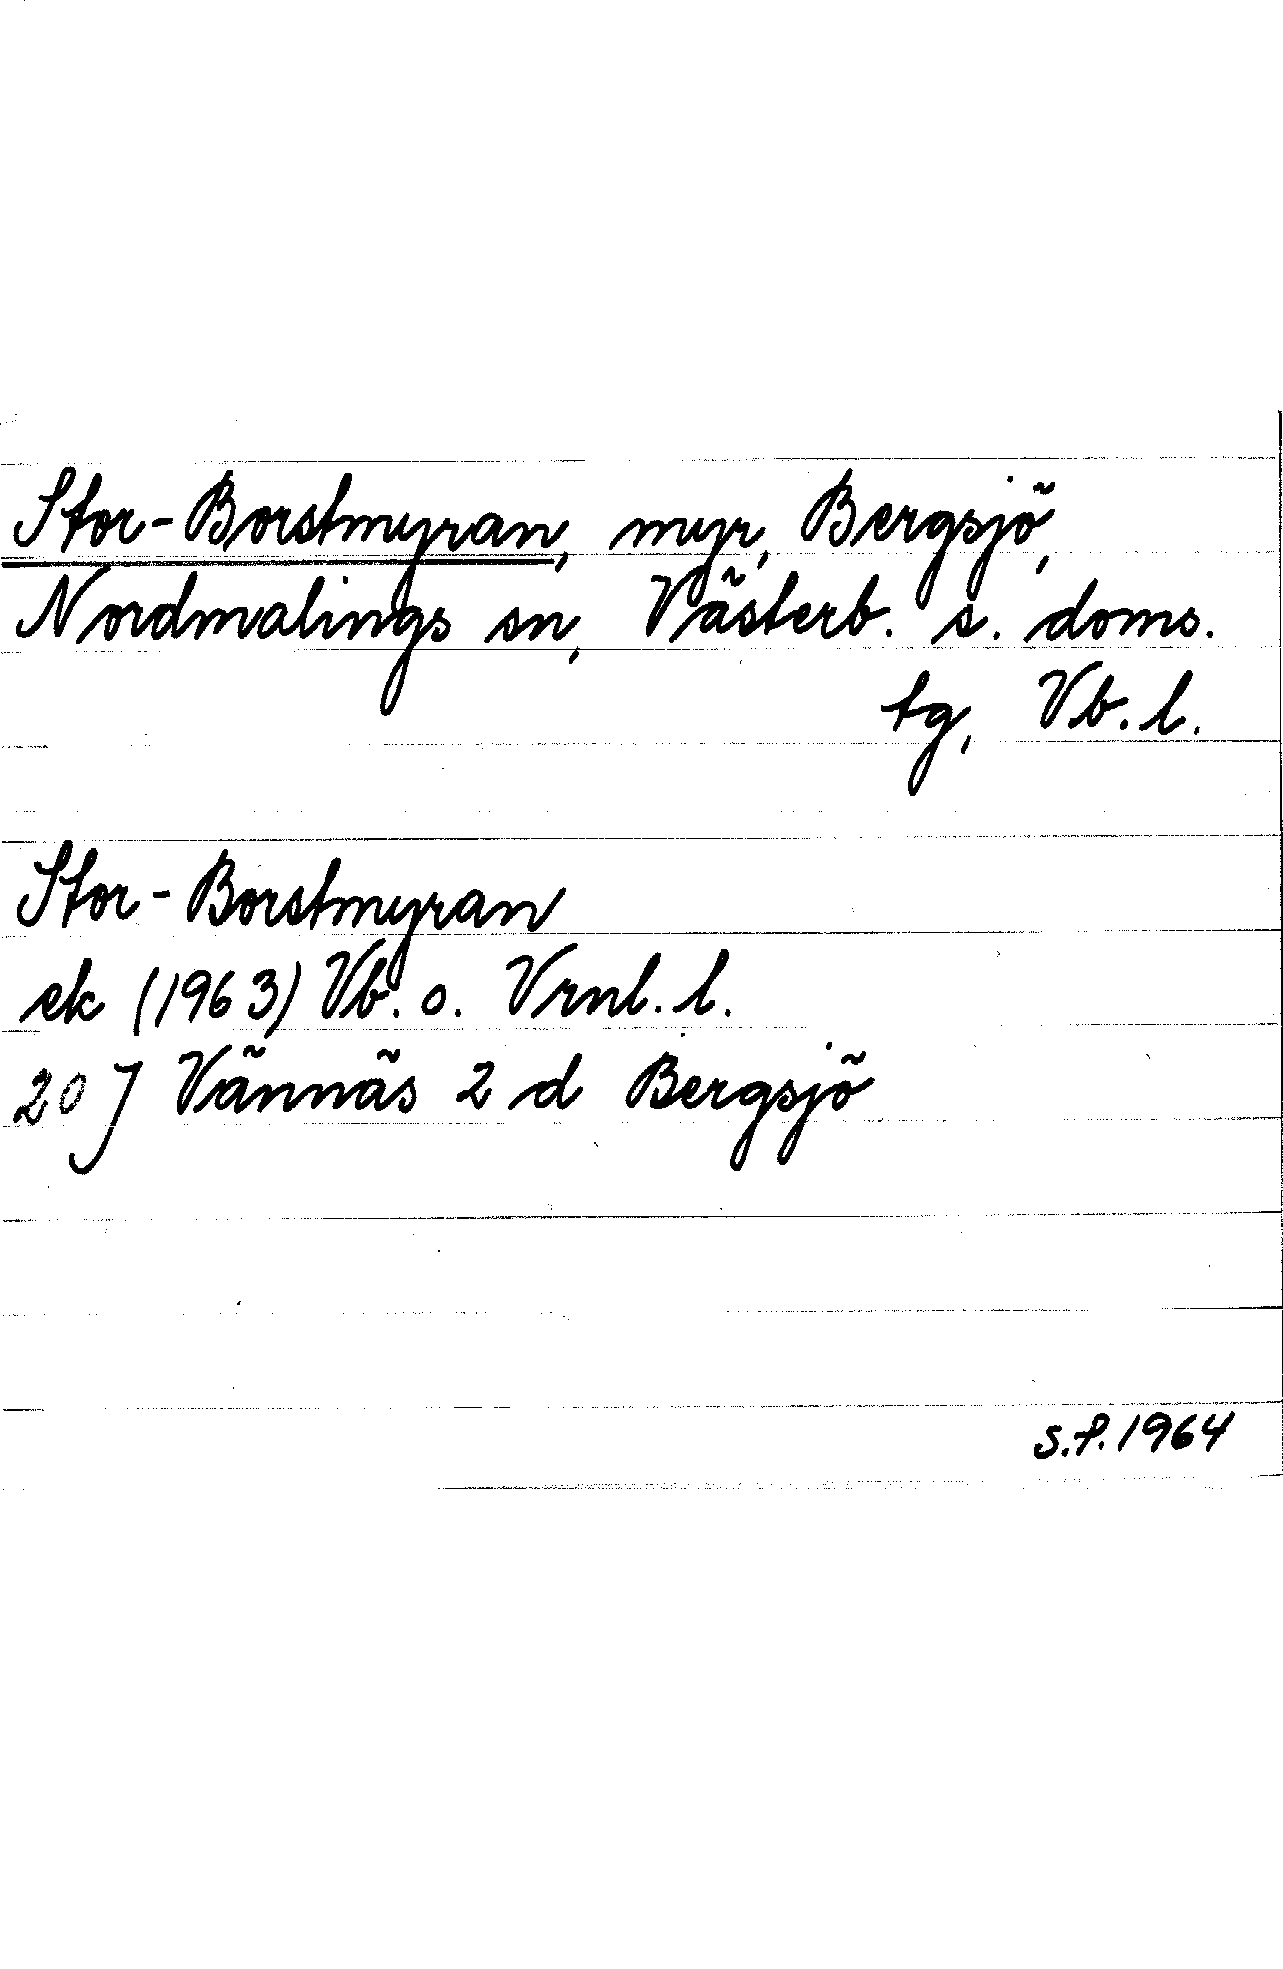 Stor-Borstmyran, myr, Bergsjö,
Nordmalings sn, Västerb. s. doms.
tg, Vb. l.
Stor-Borstmyran
ek (1963) Vb. o. Vrnl. l.
20 J Vännäs 2 d Bergsjö
S.P. 1964